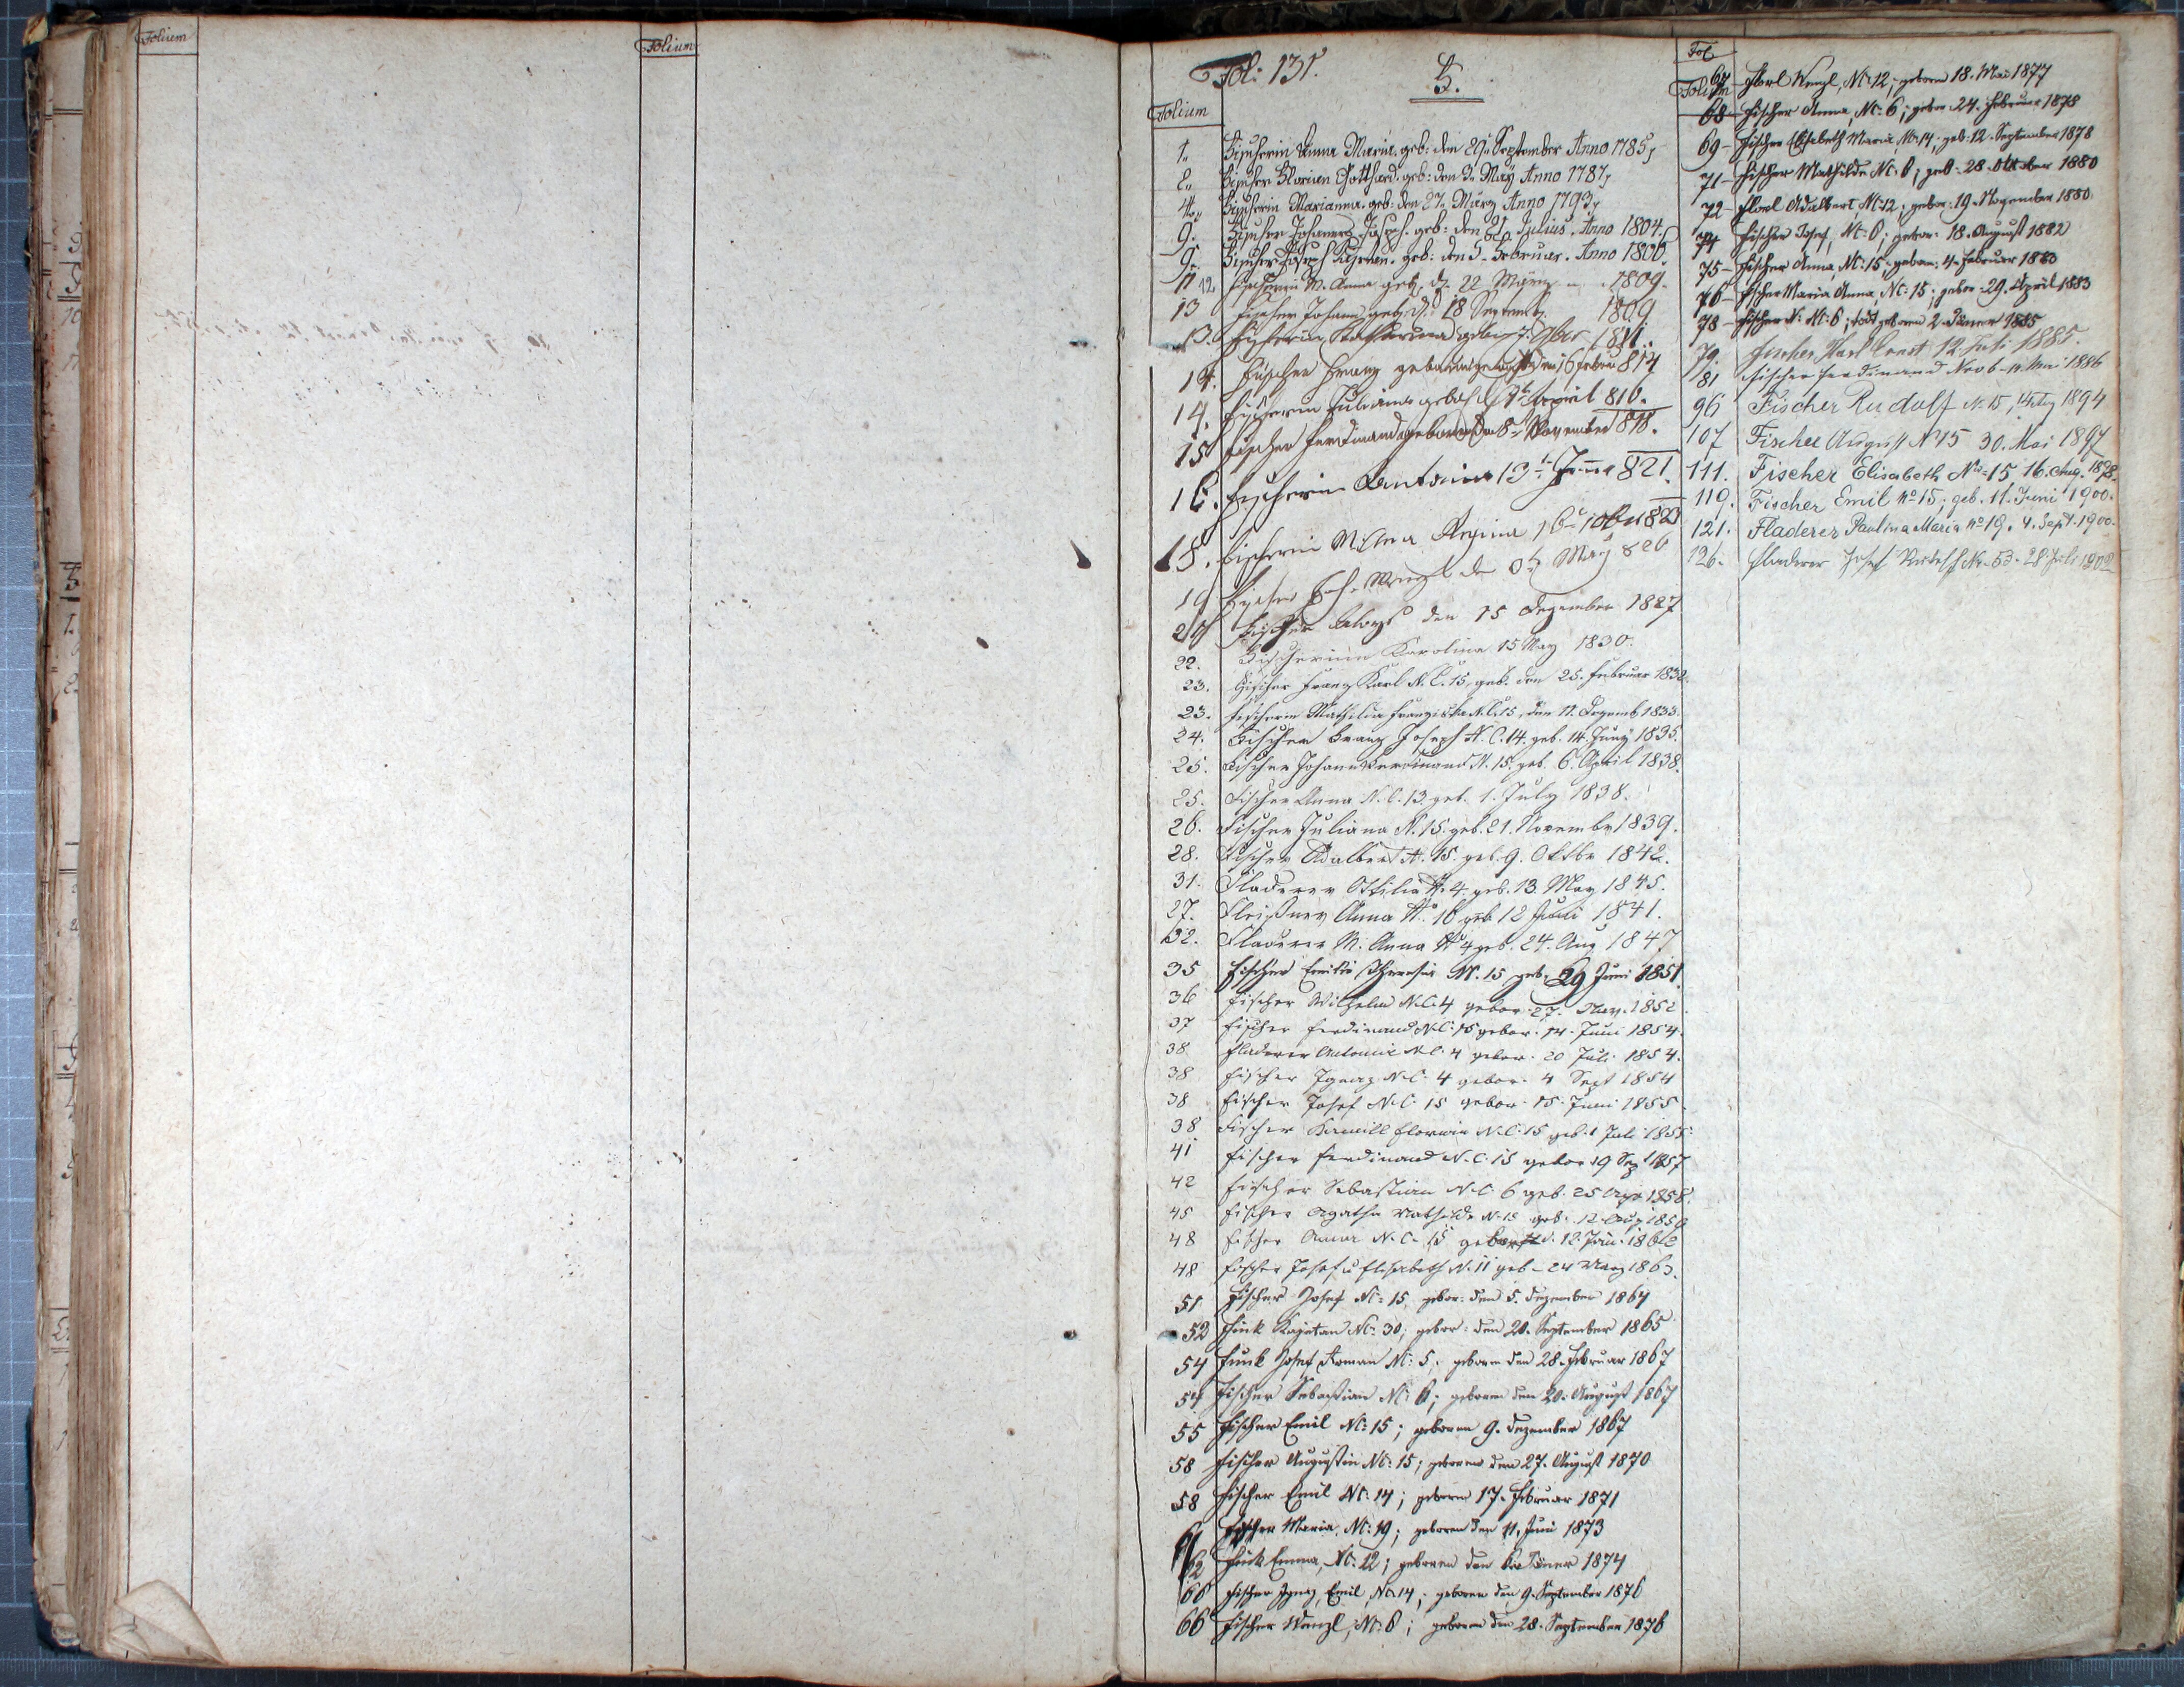 Folium
Folium
Fol: 131.
F.
Folium
1. Fischerin Anna Maria. geb: den 29. September Anno 1785
2. Fischer Florian Gotthard. geb: den 3. May Anno 1787
4. Fischerin Marianna. geb: den 27. März Anno 1793
9. Fischer Johannes Joseph. geb: den Julius. Anno 1804.
9. Fischer Joseph geb: den 5. Februar. Anno 1806.
12. Fischerin M. Anna geb. d. 22 März 1809.
13 Fischer Johann geb. d. 18 Septemb. 1809
13. Fischerin Katharina 1811.
14. Fischer Franz gebohren den 16 Febru 814
14. Fischerin Juliana geboh. d. April 816.
15 Fischer Ferdinand geboren den 8 November 818.
16. Fischerin Antonia 13 821.
18. Fischerin M. Anna Regina 823
19 Fischer Joh. Wenzl de May 826
20 Fischer Aloys den 15 Dezember 1827
22. Fischerinn Karolina 15 May 1830.
23. Fischer Franz Karl N.C. 15, geb. den 25. Februar 1832.
23. Fischerin Mathilda Franziska N.C. 15, den 11. Dezemb. 1833.
24. Fischer Franz Joseph N.C. 14. geb. 14. Juny 1835.
25. Fischer Johann Ferdinand N. 15. geb. 6. April 1838.
25. Fischer Anna N.C. 13. geb. 1. July 1838.
26. Fischer Juliana N. 15. geb. 21. Novembr 1839.
28. Fischer Adalbert N. 15. geb. 9. Oktbr 1842.
31. Fladerer Ottilia N. 4. geb. 13. May 1845.
27. Fleißner Anna N. 16 geb. 12 Juli 1841.
32. Fladerer M. Anna N 4 geb. 24. Aug 1847
35 Fischer Emilie Theresia N. 15 geb. 29 Juni 1851.
36 Fischer Wilhelm N.C. 4 gebor. 27. 1852.
37 Fischer Ferdinand N.C. 15 gebor. 14. Juni 1854.
38 Fladerer Antonie N.C. 4 gebor. 20 Juli 1854.
38 Fischer Ignaz N.C. 4 gebor. 4 Sept 1854
38 Fischer Josef N.C. 15 gebor. 15. Juni 1855.
38 Fischer Kamill Florian N.C. 15 geb. 1 Juli 1855.
41 Fischer Ferdinand N.C. 15 gebor 19 Sep 1857
42 Fischer Sebastian N.C. 6 geb. 25 Apr 1858.
45 Fischer Agatha Mathilde N. 15 geb. 12 Aug 1859
48 Fischer Anna N.C. 15 gebor d. 12. 1862
48 Fischer Josef u Elisabeth N. 11 geb. 24 März 1863.
51 Fischer Josef NC: 15, gebor: den 5. Dezember 1864
52 Fink Kajetan NC: 30; gebor: den 20. September 1865
54 Funk Josef Roman NC: 5; geboren den 28. Februar 1867
54 Fischer Sebastian NC: 6; geboren den 20. August 1867
55 Fischer Emil NC: 15; geboren 9. Dezember 1867
58 Fischer Augustin NC: 15; geboren den 27. August 1870
58 Fischer Emil NC: 14; geboren 17. Februar 1871
61 Fischer Maria, NC: 19; geboren den 11. Juni 1873
62 Fink Emma, NC: 22; geboren den 6. Jäner 1874
66 Fischer Ignaz Emil, NC: 14; geboren den 9. September 1876
66 Fischer Wenzl, NC: 6; geboren den 28. September 1876
Fol
Folium
67 Florl Wenzl, NC: 12, geboren 18. Mai 1877
68 Fischer Anna, NC: 6; gebor. 24. Februar 1878
69 – Fischer Elisabeth Maria, NC: 14; geb: 12. September 1878
71 – Fischer Mathilde NC: 6; geb: 28. Oktober 1880
72 – Florl Adalbert, NC: 12; gebor: 19. November 1880.
74 Fischer Josef, NC: 6; gebor: 18. August 1882
75 – Fischer Anna, NC: 15; gebor: 4. Februar 1883
76 – Fischer Maria Anna, NC: 15; gebor: 29. April 1883
78 – Fischer N: NC: 6; todt geboren 2. Jäner 1885
79. Fischer Karl Ernst 12. Juli 1885.
81 Fischer Ferdinand Nro 6 – 11. Mai 1886
96 Fischer Rudolf N. 15, 14. Aug 1894
107 Fischer August N 15 30. Mai 1897
111. Fischer Elisabeth No = 15, 16. Aug. 1898.
119. Fischer Emil No 15; geb. 11. Juni 1900.
121. Fladerer Paulina Maria No 19. 4. Sept. 1900.
126. Fladerer Josef Rudolf Nr. 53. 28. Juli 1902